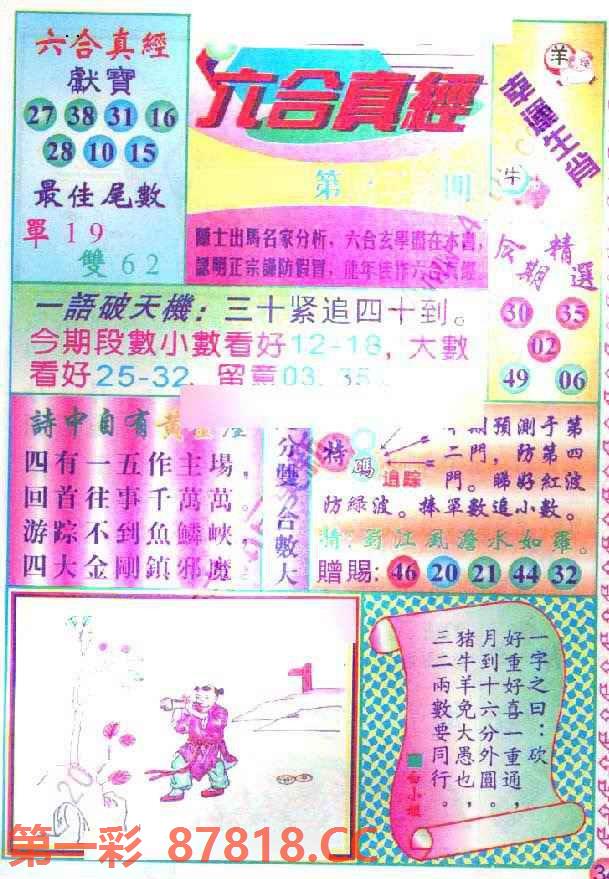 六合真經
獻寶
27 38 31 16
28 10 15
最佳尾數
單19
雙62
六合真經
第 期
隱士出馬名家分析，六合玄學盡在本書，
認明正宗謹防假冒，龍年佳作六合真經
羊
幸運生肖
牛
今期精選
30 35
02
49 06
一語破天機：三十紧追四十到。
今期段數小數看好12-18，大數
看好25-32，留意03.35.
詩中自有黃金
四有一五作主場，
回首往事千萬萬。
游踪不到魚鱗峽，
四大金剛鎮邪魔
分雙合數大
特碼追踪
期預測于第
二門，防第四
門。睇好紅波
防綠波。捧單數追小數。
特:蜀江風澹水如羅。
贈賜: 46 20 21 44 32
一字之曰：砍
好重好喜一重通，
月到十六分外圓，
猪牛羊免大愚也，
三二兩數要同行。
白小姐
第一彩 87818.CC
3